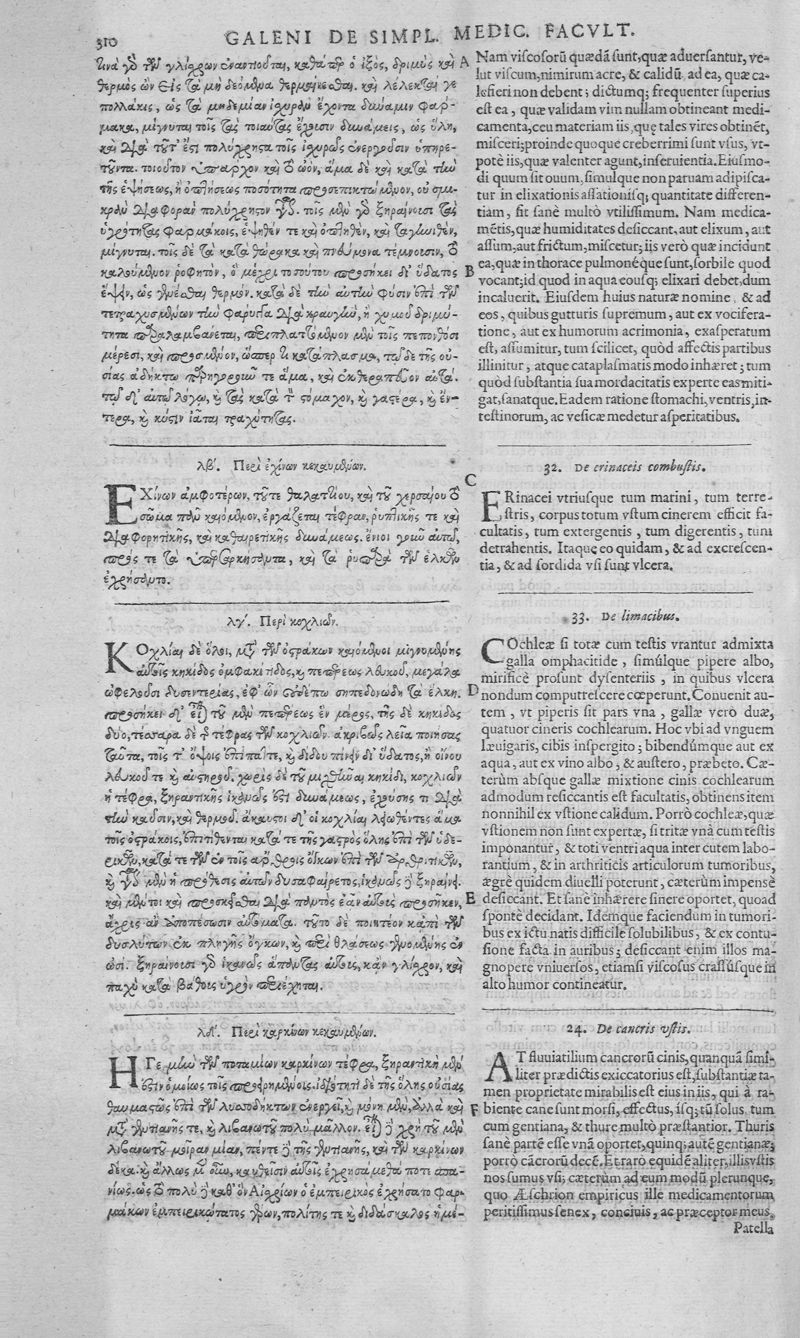 310
GALENI DE SIMPL. MEDIC. FACVLT.
τινὰ γὸ τῶν γλίσχρων ἐναντιοῦται, καθάπερ ὁ ἰξὸς, δριμὺς καὶ
θερμὸς ὢν εἰς τὰ μὴ δεόμενα θερμαίνεσθαι. καὶ λέλεκταί γε
πολλάκις, ὡς τὰ μηδεμίαν ἰσχυρὰν ἔχοντα δύναμιν φάρ-
μακα, μίγνυται τοῖς τὰς τοιαύτας ἔχουσιν δυνάμεις, ὡς ὕλη,
καὶ διὰ τοῦτ' ἔστι πολύχρηστα τοῖς ἰσχυρῶς ἐνεργοῦσιν ὑπηρε-
τοῦντα. τοιοῦτον ὑπάρχον καὶ τὸ ὠὸν, ἅμα δὲ καὶ κατὰ τὴν
τῆς ἑψήσεως, ἢ ὀπτήσεως ποσότητα προσεπικτώμενον, οὐ σμι-
κρὰν διαφορὰν πολύχρηστον γίνεται. τοῖς μὲν γὸ ξηραίνουσι τὰς
ὑγρότητας φαρμάκοις, ἑψηθέν τε καὶ ὀπτηθὲν, καὶ ταγηνισθὲν,
μίγνυται. τοῖς δὲ τὰ κατὰ θώρακα καὶ πνεύμονα τέμνουσιν, τὸ
καλούμενον ῥοφητὸν, ὃ μέχρι τοσούτου προσήκει δι' ὕδατος
ἕψειν, ὡς γενέσθαι θερμόν. κατὰ δὲ τὴν αὐτὴν φύσιν ἐπὶ τῶν
τετραχυσμένων τὴν φάρυγγα διὰ κραυγὴν, ἢ χυμοῦ δριμύ-
τητα παραλαμβάνεται, περιπλαττόμενον μὲν τοῖς πεπονθόσι
μέρεσι, καὶ προσμένον, ὥσπερ τι κατάπλασμα, τῷ δὲ τῆς οὐ-
σίας ἀδήκτῳ παρηγοροῦν τε ἅμα, καὶ ἐκθεραπεῦον αὐτά.
τῷ δ' αὐτῷ λόγῳ, καὶ τὰς κατὰ τὸν στόμαχον, καὶ γαστέρα, καὶ ἔν-
τερα, καὶ κύστιν ἰᾶται τραχύτητας.
λβ'. Περὶ ἐχίνων κεκαυμένων.
ΕΧίνων ἀμφοτέρων, τοῦτε θαλαττίου, καὶ τοῦ χερσαίου τὸ
σῶμα πᾶν καιόμενον, ἐργάζεται τέφραν, ῥυπτικῆς τε καὶ
διαφορητικῆς, καὶ καθαιρετικῆς δυνάμεως. ἔνιοι γοῦν αὐτῷ,
πρός τε τὰ ὑπερσαρκήσαντα, καὶ τὰ ῥυπαρὰ τῶν ἑλκῶν
ἐχρήσαντο.
λγ'. Περὶ κοχλιῶν.
ΚΟχλίαι δὲ ὅλοι, μετὰ τῶν ὀστράκων καιόμενοι μιγνυμένης
αὐτοῖς κηκίδος ὀμφακίτιδος, καὶ πεπέρεως λευκοῦ, μεγάλα
ὠφελοῦσι δυσεντερίας, ἐφ' ὧν οὐδέπω σηπεδονώδη τὰ ἕλκη.
προσήκει δ' εἶναι τοῦ μὲν πεπέρεως ἓν μέρος, τῆς δὲ κηκίδος
δύο, τέσσαρα δὲ τῆς τέφρας τῶν κοχλιῶν. ἀκριβῶς λεῖα ποιήσας
ταῦτα, τοῖς τ' ὄψοις ἐπίπαττε, καὶ δίδου πίνειν δι' ὕδατος, ἢ οἴνου
λευκοῦ τε καὶ αὐστηροῦ. χωρὶς δὲ τοῦ μιχθῆναι κηκίδι, κοχλιῶν
ἡ τέφρα, ξηραντικῆς ἱκανῶς ἐστὶ δυνάμεως, ἐχούσης τι διὰ
τὴν καῦσιν, καὶ θερμοῦ. ἄκαυστοι δ' οἱ κοχλίαι λειωθέντες ἅμα
τοῖς ὀστράκοις, ἐπιτίθενται κατά τε τῆς γαστρὸς ὅλης ἐπὶ τῶν ὑδε-
ρικῶν, κατά τε τῶν ἐν τοῖς ἄρθροις ὄγκων ἐπὶ τῶν ἀρθριτικῶν,
καὶ γίνεται μὲν ἡ πρόσθεσις αὐτῶν δυσαφαίρετος, ἱκανῶς δὲ ξηραίνει.
καὶ μέντοι καὶ προσκεῖσθαι διὰ παντὸς ἐᾶν αὐτοῖς προσῆκεν,
ἄχρις ἂν ἀποπέσωσιν αὐτόματα. τοῦτο δὲ ποιητέον κἀπὶ τῶν
δυσλύτων ἐκ πληγῆς ὄγκων, καὶ περὶ θλάσεως γενομένης ἐν
ὠσί. ξηραίνουσι γὸ ἱκανῶς ἅπαντας αὐτοὺς, κἂν γλίσχρον, καὶ
παχὺ κατὰ βάθους ὑγρὸν περιέχηται.
λδ'. Περὶ καρκίνων κεκαυμένων.
Η Γε μὴν τῶν ποταμίων καρκίνων τέφρα, ξηραντικὴ μέν
ἐστιν ὁμοίως τοῖς προειρημένοις. ἰδιότητι δὲ τῆς ὅλης οὐσίας
θαυμαστῶς ἐπὶ τῶν λυσσοδήκτων ἐνεργεῖ, καὶ μόνη μὲν, ἀλλὰ καὶ
μετὰ γεντιανῆς τε, καὶ λιβανωτοῦ πολὺ μᾶλλον. εἶναι δὲ χρὴ τοῦ μὲν
λιβανωτοῦ μοῖραν μίαν, πέντε δὲ τῆς γεντιανῆς, καὶ τῶν καρκίνων
δέκα. καὶ ἄλλως μὲν οὖν, καυθεῖσιν αὐτοῖς ἐχρησάμεθά ποτε σπα-
νίως. ὡς τὸ πολὺ δὲ καθ' ὃν Αἰσχρίων ὁ ἐμπειρικὸς ἐχρήσατο φαρ-
μάκων ἐμπειρικώτατος γέρων, πολίτης τε καὶ διδάσκαλος ἡμέ-
A
B
C
D
E
F
Nam viscosorũ quædã sunt, quæ aduersantur, ve-
lut viscum, nimirum acre, & calidũ, ad ea, quæ ca-
lefieri non debent; dictumq; frequenter superius
est ea, quæ validam vim nullam obtineant medi-
camenta, ceu materiam iis, quę tales vires obtinẽt,
misceri; proinde quoque creberrimi sunt vsus, vt-
potè iis, quæ valenter agunt, inseruientia. Eiusmo-
di quum sit ouum, simulque non paruam adipisca-
tur in elixationis assationisq; quantitate differen-
tiam, sit sanè multò vtilissimum. Nam medica-
mẽtis, quæ humiditates desiccant, aut elixum, aut
assum, aut frictum, miscetur; iis verò quæ incidunt
ea, quæ in thorace pulmonéque sunt, sorbile quod
vocant; id quod in aqua eousq; elixari debet, dum
incaluerit. Eiusdem huius naturæ nomine, & ad
eos, quibus gutturis supremum, aut ex vocifera-
tione, aut ex humorum acrimonia, exasperatum
est, assumitur, tum scilicet, quòd affectis partibus
illinitur, atque cataplasmatis modo inhæret; tum
quòd substantia sua mordacitatis experte eas miti-
gat, sanatque. Eadem ratione stomachi, ventris, in-
testinorum, ac vesicæ medetur asperitatibus.
32. De erinaceis combustis.
ERinacei vtriusque tum marini, tum terre-
stris, corpus totum vstum cinerem efficit fa-
cultatis, tum extergentis, tum digerentis, tum
detrahentis. Itaque eo quidam, & ad excrescen-
tia, & ad sordida vsi sunt vlcera.
33. De limacibus.
COchleæ si totæ cum testis vrantur admixta
galla omphacitide, simúlque pipere albo,
mirificè prosunt dysenteriis, in quibus vlcera
nondum computrescere cœperunt. Conuenit au-
tem, vt piperis sit pars vna, gallæ verò duæ,
quatuor cineris cochlearum. Hoc vbi ad vnguem
læuigaris, cibis inspergito; bibendúmque aut ex
aqua, aut ex vino albo; & austero, præbeto. Cæ-
terùm absque gallæ mixtione cinis cochlearum
admodum resiccantis est facultatis, obtinens item
nonnihil ex vstione calidum. Porrò cochleæ, quæ
vstionem non sunt expertæ, si tritæ vnà cum testis
imponantur, & toti ventri aqua inter cutem labo-
rantium, & in arthriticis articulorum tumoribus,
ægrè quidem diuelli poterunt, cæterùm impensè
desiccant. Et sanè inhærere sinere oportet, quoad
spontè decidant. Idemque faciendum in tumori-
bus ex ictu natis difficile solubilibus, & ex contu-
sione facta in auribus; desiccant enim illos ma-
gnopere vniuersos, etiamsi viscosus crassúsque in
alto humor contineatur.
24. De cancris vstis.
AT fluuiatilium cancrorũ cinis, quanquã simi-
liter prædictis exiccatorius est, substantiæ ta-
men proprietate mirabilis est eius in iis, qui à ra-
biente cane sunt morsi, effectus, isq; tũ solus, tum
cum gentiana, & thure multò præstantior. Thuris
sanè partẽ esse vnã oportet, quinq; autẽ gentianæ;
porrò cãcrorũ decẽ. Et rarò equidẽ aliter, illis vstis
nos sumus vsi; cæterùm ad eum modũ plerunque,
quo Æschrion empiricus ille medicamentorum
peritissimus senex, conciuis, ac præceptor meus.
Patella